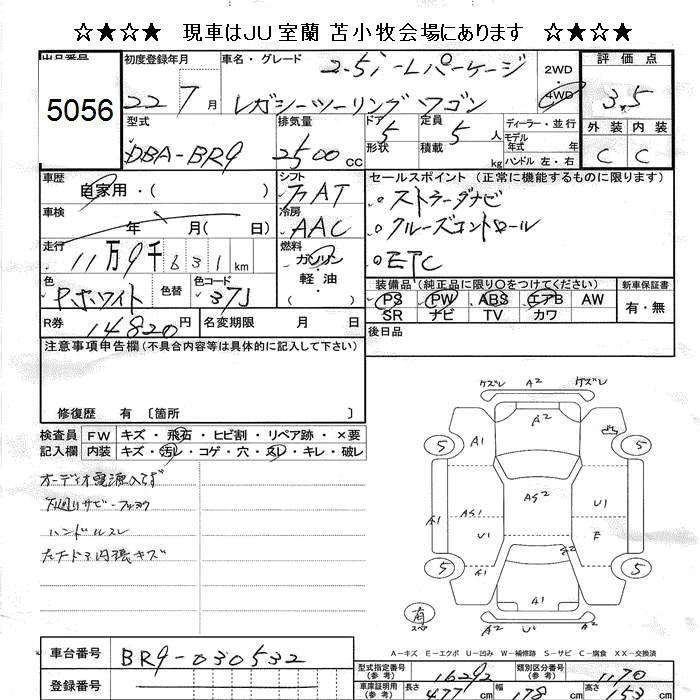 ☆★☆★ 現車はJU室蘭 苫小牧会場にあります ☆★☆★
出品番号
5056
初度登録年月
22 7月
車名・グレード
2.5i-Lパーケージ
レガシーツーリングワゴン
2WD
・
4WD
評価点
3.5
外装 内装
C C
型式
DBA-BR9
排気量
2500cc
ドア 5
形状
定員 5人
積載 kg
ディーラー・並行
モデル年式 年式
ハンドル 左・右
車歴
自家用・( )
シフト
FAT
車検
年 月( 日)
冷房
AAC
走行
11万9千631km
燃料
ガソリン
軽油
( )
色
P.ホワイト
色替
色コード
37J
R券
14820円
名変期限 月 日
セールスポイント (正常に機能するものに限ります)
ストラーダナビ
クルーズコントロール
ETC
装備品 (純正品に限り○をつけてください)
PS PW ABS エアB AW
SR ナビ TV カワ
新車保証書
有・無
後日品
注意事項申告欄(不具合内容等は具体的に記入して下さい)
修復歴 有〔箇所 〕
検査員 FW キズ・飛石・ヒビ割・リペア跡・×要
記入欄 内装 キズ・汚レ・コゲ・穴・スレ・キレ・破レ
オーディオ電源入らず
下廻りサビ・フショク
ハンドルスレ
左Fドア内張キズ
ケズレ A2 ケズレ
A2
A1
5 5
AS2
A1 AS1 U1
F
A1 U1
A2
5 5
A1
有
スペ
A2 A2 U1
A-キズ E-エクボ U-凹み W-補修跡 S-サビ C-腐食 XX-交換済
車台番号 BR9-030532
登録番号
型式指定番号(参考) 16292
類別区分番号(参考) 1170
車庫証明用(参考) 長さ 477cm 幅 178cm 高さ 153cm